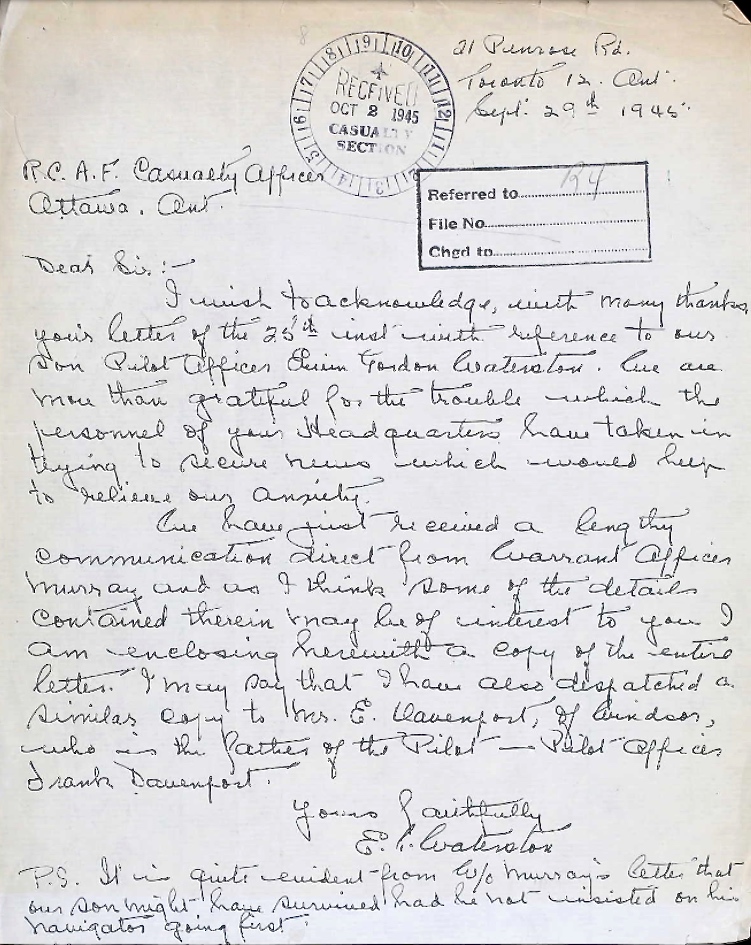 21 Penrose Rd.
Toronto 12. Ont.
Sept. 29th 1945.
RECEIVED
OCT 2 1945
CASUALTY
SECTION
R.C.A.F. Casualty Officer
Ottawa. Ont.
Referred to R4
File No.
Chgd to
Dear Sir:-
I wish to acknowledge, with many thanks,
your letter of the 25th inst with reference to our
son Pilot Officer Gordon Waterston. We are
more than grateful for the trouble which the
personnel of your Headquarters have taken in
trying to secure news which would help
to relieve our anxiety.
We have just received a lengthy
communication direct from Warrant Officer
Murray and as I think some of the details
contained therein may be of interest to you I
am enclosing herewith a copy of the entire
letter. I may say that I have also dispatched a
similar copy to Mr. E. Davenport, of Windsor,
who is the father of the Pilot - Pilot Officer
Frank Davenport.
Yours faithfully
E. Waterston
P.S. It is quite evident from W/O Murray's letter that
our son might have survived had he not insisted on his
navigator going first.